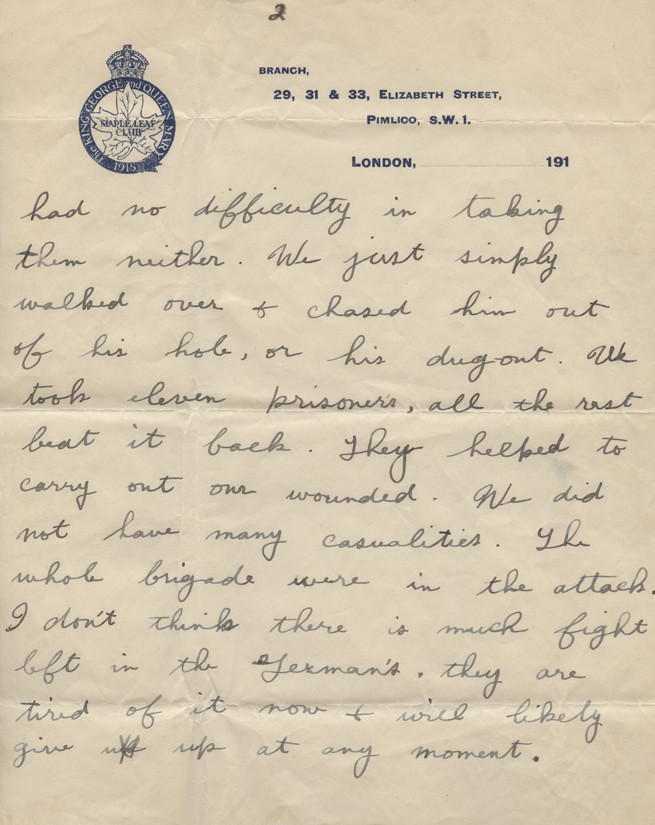 2
The KING GEORGE and QUEEN MARY
MAPLE LEAF
CLUB
1915
BRANCH,
29, 31 & 33, ELIZABETH STREET,
PIMLICO, S.W.1.
LONDON, 191
had no difficulty in taking
them neither. We just simply
walked over & chased him out
of his hole, or his dug-out. We
took eleven prisoners, all the rest
beat it back. They helped to
carry out our wounded. We did
not have many casualities. The
whole brigade were in the attack.
I don't think there is much fight
left in the German's. they are
tired of it now & will likely
give up at any moment.